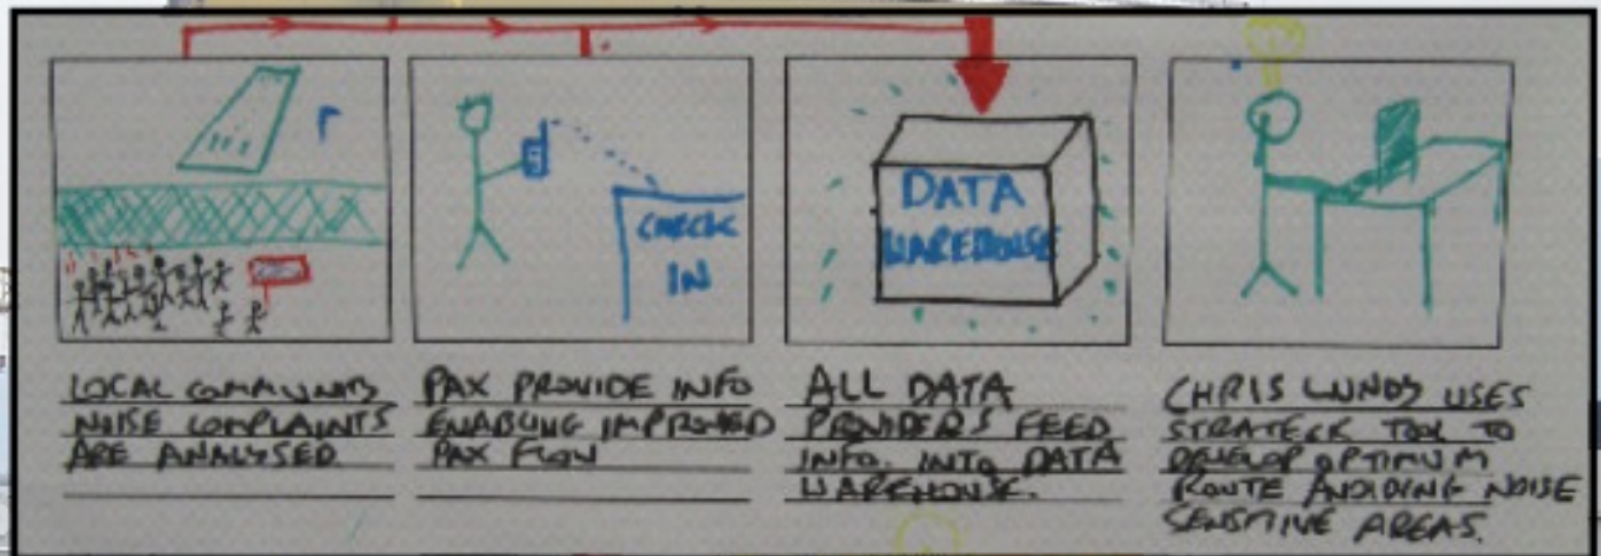 CHECK
IN
DATA
WAREHOUSE
LOCAL COMMUNITY
NOISE COMPLAINTS
ARE ANALYSED.
PAX PROVIDE INFO
ENABLING IMPROVED
PAX FLOW
ALL DATA
PROVIDERS FEED
INFO. INTO DATA
WAREHOUSE.
CHRIS LUNDY USES
STRATEGIC TOOL TO
DEVELOP OPTIMUM
ROUTE AVOIDING NOISE
SENSITIVE AREAS.